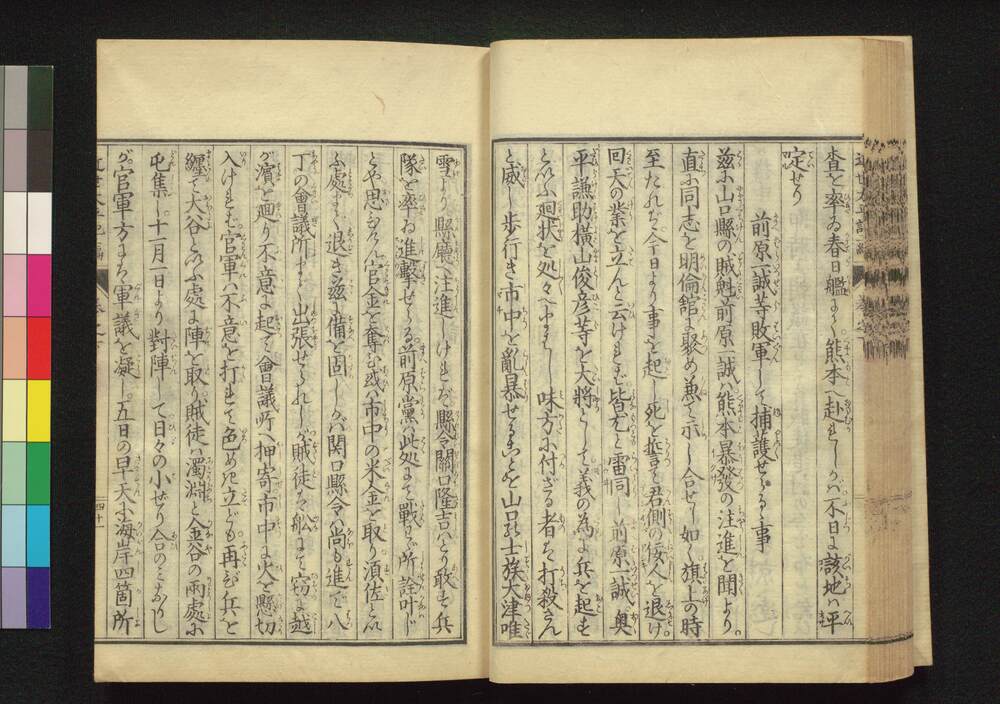 査を率ゐ春日艦にて熊本へ赴きしかバ不日に該地ハ平
定せり
前原一誠等敗軍して捕護せらるゝ事
茲に山口縣の賊魁前原一誠ハ熊本暴發の注進を聞より。
直に同志を明倫舘に聚め兼て示し合せし如く旗上の時
至たれバ今日より事を起し死を誓て君側の佞人を退け
回天の業を立んと云けれバ皆尤と雷同し前原一誠奥
平謙助横山俊彦等を大將として義の為に兵を起す
といふ廻状を処々へまわし味方に付ざる者ハ打殺さん
と威し歩行き市中を亂暴せることを山口の士族大津唯
雪より縣廳へ注進しけれバ縣令關口隆吉ハとり敢す兵
隊を率ゐ進撃せらる前原黨ハ此処にて戰ふハ所詮叶じ
とや思ひけん官金を奪ひ或ハ市中の米金を取り須佐とい
ふ處まで退き茲に備を固しかバ関口縣令ハ尚も進で八
丁の會議所まで出張せられしが賊徒ハ舩にて窃に越
が濱を廻り不意に起て會議所へ押寄市中に火を懸切
入けれバ官軍ハ不意を打れて色めき立ども再び兵を
纏て大谷といふ處に陣を取り賊徒ハ濁淵と金谷の兩處に
屯集し十一月一日より對陣して日々の小ぜり合のミなりし
が官軍方にハ軍議を凝し五日の早天に海岸四箇所
四十